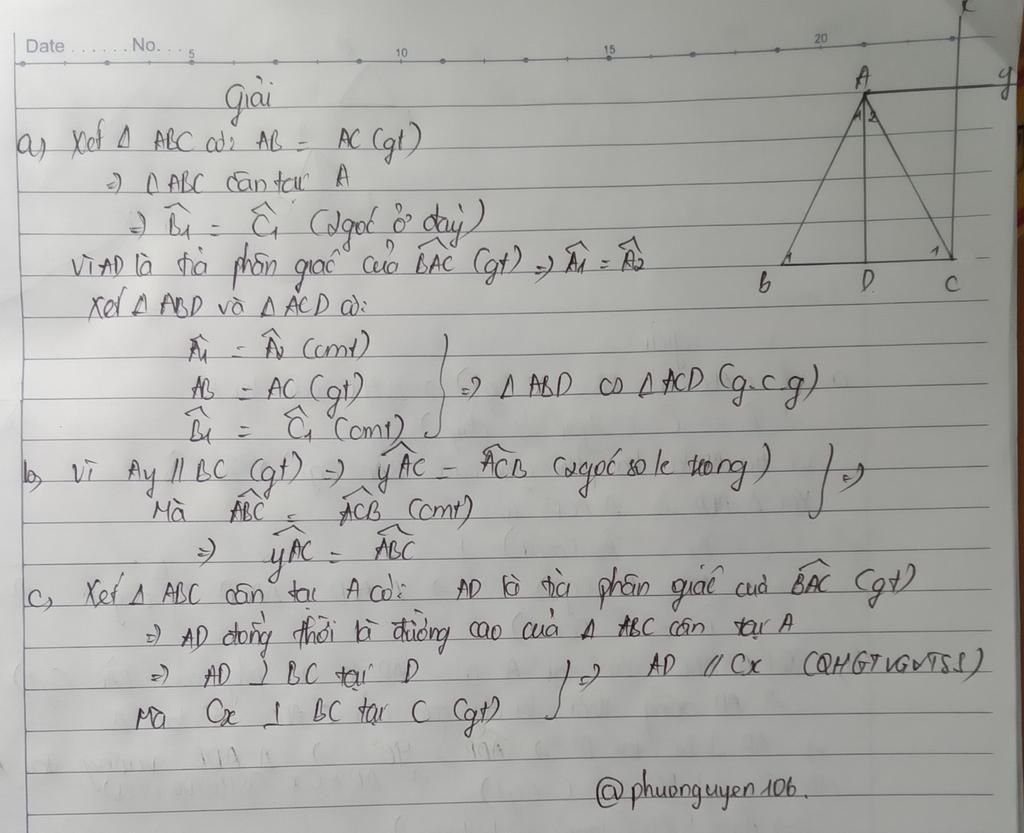 Date ...... No. ... 5 10 15 20
x
A y
1 2
1 1
B D C
Giải
a, Xét Δ ABC có: AB = AC (gt)
=) Δ ABC cân tại A
=) B̂₁ = Ĉ₁ (2 góc ở đáy)
Vì AD là tia phân giác của BAC (gt) =) Â₁ = Â₂
Xét Δ ABD và Δ ACD có:
Â₁ = Â₂ (cmt)
AB = AC (gt) } =) Δ ABD ∽ Δ ACD (g.c.g)
B̂₁ = Ĉ₁ (cmt)
b, Vì Ay // BC (gt) =) yAC = ACB (2 góc so le trong) } =)
Mà ABC = ACB (cmt)
=) yAC = ABC
c, Xét Δ ABC cân tại A có: AD là tia phân giác của BAC (gt)
=) AD đồng thời là đường cao của Δ ABC cân tại A
=) AD ⊥ BC tại D } =) AD // Cx (QHGTVGVTSS)
Mà Cx ⊥ BC tại C (gt)
@phuonguyen106.